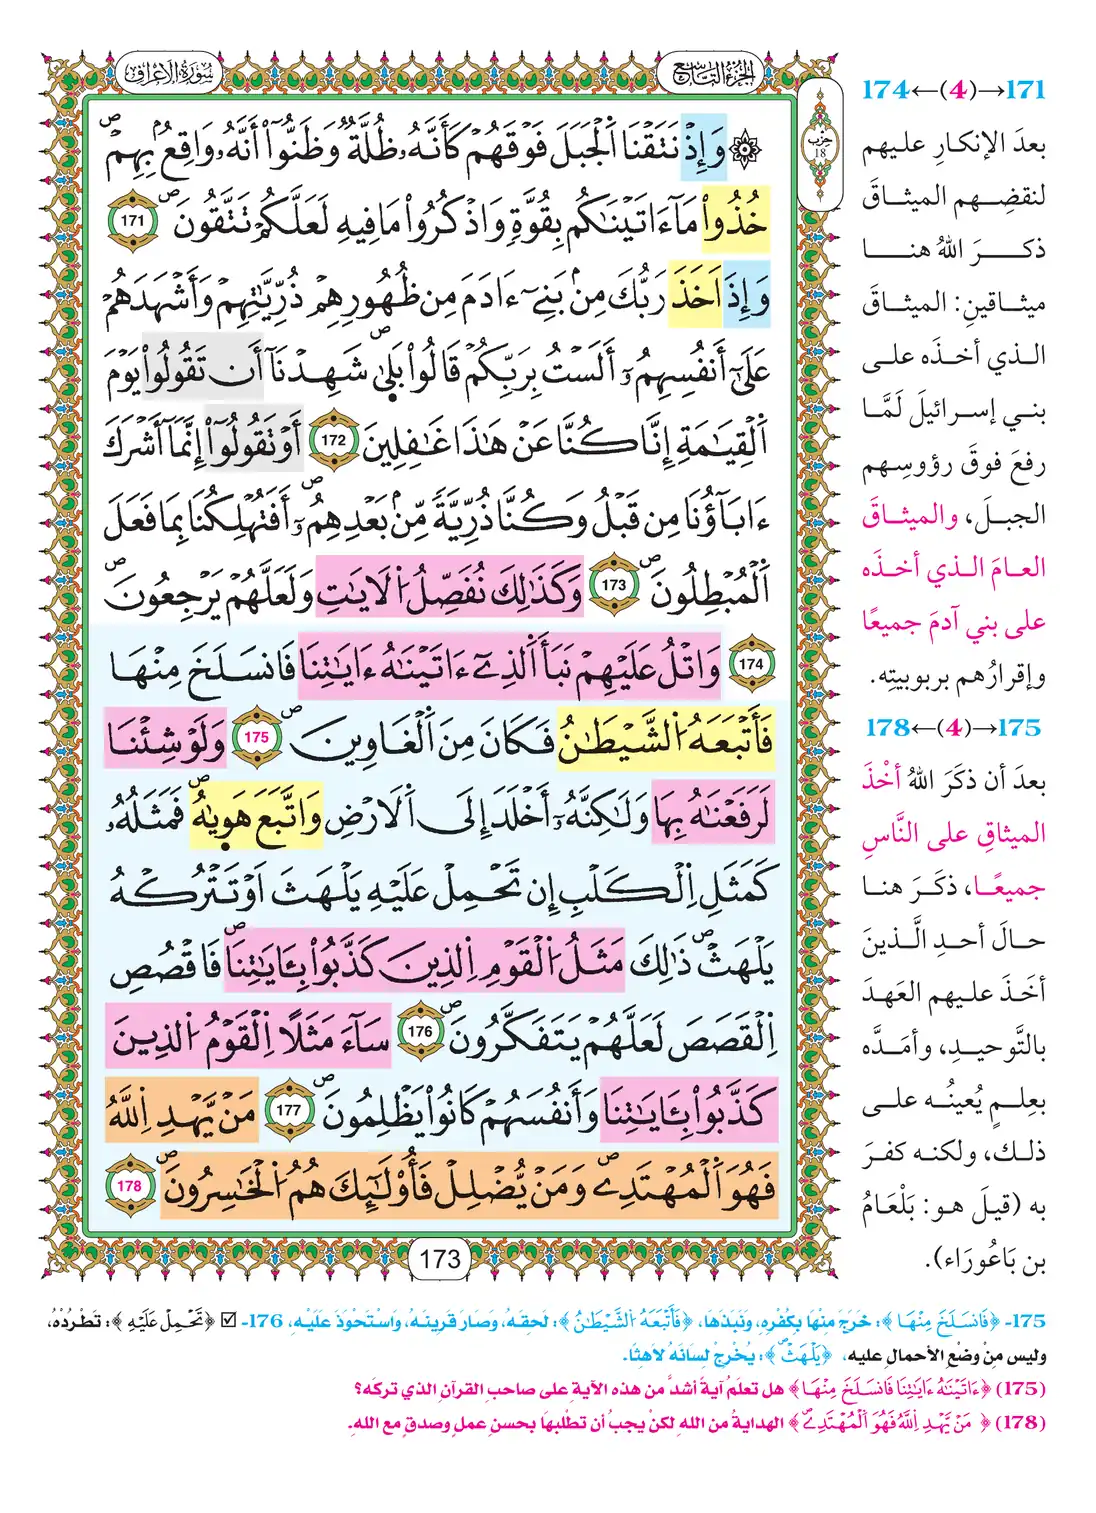 سُورَةُ الأَعْرَافِ
الجُزْءُ التَّاسِعُ
حِزْب
18
۞ وَإِذْ نَتَقْنَا اَلْجَبَلَ فَوْقَهُمْ كَأَنَّهُۥ ظُلَّةٌ وَظَنُّوٓاْ أَنَّهُۥ وَاقِعُۢ بِهِمْۖ
خُذُواْ مَآ ءَاتَيْنَٰكُم بِقُوَّةٖ وَاذْكُرُواْ مَا فِيهِ لَعَلَّكُمْ تَتَّقُونَۖ 171
وَإِذَ اَخَذَ رَبُّكَ مِنۢ بَنِےٓ ءَادَمَ مِن ظُهُورِهِمْ ذُرِّيَّٰتِهِمْ وَأَشْهَدَهُمْ
عَلَىٰٓ أَنفُسِهِمُۥٓ أَلَسْتُ بِرَبِّكُمْ قَالُواْ بَلَىٰۖ شَهِدْنَآ أَن تَقُولُواْ يَوْمَ
اَلْقِيَٰمَةِ إِنَّا كُنَّا عَنْ هَٰذَا غَٰفِلِينَ 172 أَوْ تَقُولُوٓاْ إِنَّمَآ أَشْرَكَ
ءَابَآؤُنَا مِن قَبْلُ وَكُنَّا ذُرِّيَّةٗ مِّنۢ بَعْدِهِمُۥٓۖ أَفَتُهْلِكُنَا بِمَا فَعَلَ
اَلْمُبْطِلُونَۖ 173 وَكَذَٰلِكَ نُفَصِّلُ اُلَايَٰتِ وَلَعَلَّهُمْ يَرْجِعُونَۖ
174 وَاتْلُ عَلَيْهِمْ نَبَأَ اَلذِےٓ ءَاتَيْنَٰهُ ءَايَٰتِنَا فَانسَلَخَ مِنْهَا
فَأَتْبَعَهُ اُلشَّيْطَٰنُ فَكَانَ مِنَ اَلْغَاوِينَۖ 175 وَلَوْ شِئْنَا
لَرَفَعْنَٰهُ بِهَا وَلَٰكِنَّهُۥٓ أَخْلَدَ إِلَى اَلَارْضِ وَاتَّبَعَ هَوِىٰهُۖ فَمَثَلُهُۥ
كَمَثَلِ اِلْكَلْبِ إِن تَحْمِلْ عَلَيْهِ يَلْهَثَ اَوْ تَتْرُكْهُ
يَلْهَثْۖ ذَّٰلِكَ مَثَلُ اُلْقَوْمِ اِلذِينَ كَذَّبُواْ بِـَٔايَٰتِنَاۖ فَاقْصُصِ
اِلْقَصَصَ لَعَلَّهُمْ يَتَفَكَّرُونَۖ 176 سَآءَ مَثَلًا اِلْقَوْمُ اُلذِينَ
كَذَّبُواْ بِـَٔايَٰتِنَا وَأَنفُسَهُمْ كَانُواْ يَظْلِمُونَۖ 177 مَنْ يَّهْدِ اِللَّهُ
فَهُوَ اَلْمُهْتَدِےۖ وَمَنْ يُّضْلِلْ فَأُوْلَٰٓئِكَ هُمُ اُلْخَٰسِرُونَۖ 178
173
171→(4)←174
بعدَ الإنكارِ عليهم
لنقضِهم الميثاقَ
ذكرَ اللهُ هنا
ميثاقينِ: الميثاقَ
الذي أخذَه على
بني إسرائيلَ لَمَّا
رفعَ فوقَ رؤوسِهم
الجبلَ، والميثاقَ
العامَ الذي أخذَه
على بني آدمَ جميعًا
وإقرارُهم بربوبيتِه.
175→(4)←178
بعدَ أن ذكَرَ اللهُ أخْذَ
الميثاقِ على النَّاسِ
جميعًا، ذكَرَ هنا
حالَ أحدِ الَّذينَ
أخَذَ عليهم العَهدَ
بالتَّوحيدِ، وأمَدَّه
بعِلمٍ يُعينُه على
ذلكَ، ولكنه كفرَ
به (قيلَ هو: بَلْعَامُ
بن بَاعُورَاء).
175- ﴿فَانسَلَخَ مِنْهَا﴾: خَرَجَ مِنْهَا بِكُفْرِهِ، وَنَبَذَهَا، ﴿فَأَتْبَعَهُ اُلشَّيْطَٰنُ﴾: لَحِقَهُ، وَصَارَ قَرِينَهُ، وَاسْتَحْوَذَ عَلَيْهِ، 176- ☑ ﴿تَحْمِلْ عَلَيْهِ﴾: تَطْرُدْهُ،
وليس مِنْ وضْعِ الأحمالِ عليه، ﴿يَلْهَثْۖ﴾: يُخْرِجْ لِسَانَهُ لَاهِثًا.
(175) ﴿ءَاتَيْنَٰهُ ءَايَٰتِنَا فَانسَلَخَ مِنْهَا﴾ هل تعلَمُ آيةً أشدَّ من هذه الآيةِ على صاحبِ القرآنِ الذي تركَه؟
(178) ﴿مَنْ يَّهْدِ اِللَّهُ فَهُوَ اَلْمُهْتَدِےۖ﴾ الهدايةُ من اللهِ لكنْ يجبُ أن تطلُبهَا بحسنِ عملٍ وصدقٍ مع اللهِ.